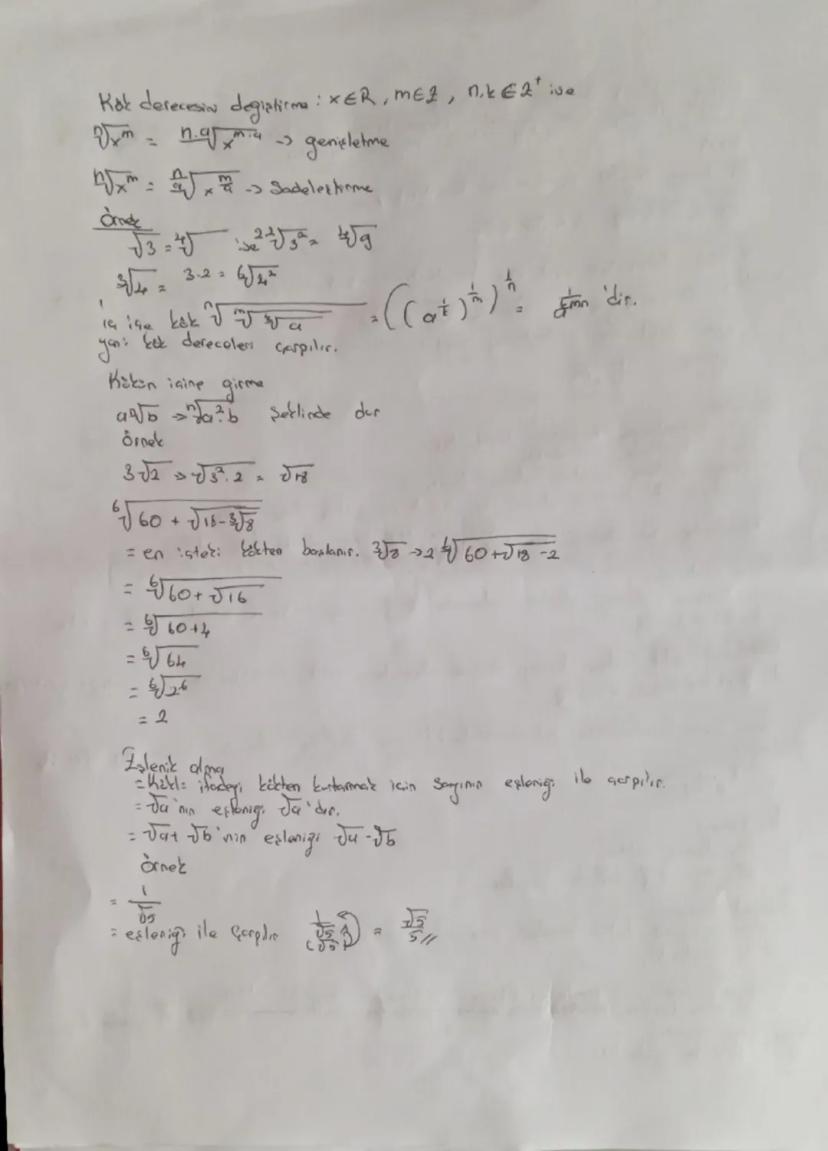 Kök derecesini değiştirme: x∈R, m∈Z, n,k∈Z⁺ ise
ⁿ√x^m = n.a√x^m.a → genişletme
ⁿ√x^m = n/a√x^m/a → Sadeleştirme
Örnek
√3 = ⁴√ ise 2.2√3² = ⁴√9
³√4 = 3.2 = ⁶√4²
iç içe kök ⁿ√ᵐ√ᵏ√a = ((a^1/k)^1/m)^1/n = 'dir.
yani kök dereceleri çarpılır.
Kökün içine girme
aⁿ√b → ⁿ√a².b Şeklinde dır
Örnek
3√2 → √3².2 = √18
⁶√60 + √18-³√8
= en içteki kökten başlanır. ³√8 → 2 ⁶√60+√18-2
= ⁶√60+√16
= ⁶√60+4
= ⁶√64
= ⁶√2⁶
= 2
Eşlenik alma
= Köklü ifadeyi kökten kurtarmak için sayının eşleniği ile çarpılır.
= √a'nın eşleniği √a'dır.
= √a+√b'nin eşleniği √a-√b
Örnek
= 1/√5
= eşleniği ile çarpılır 1/√5 (√5) = √5/5 //